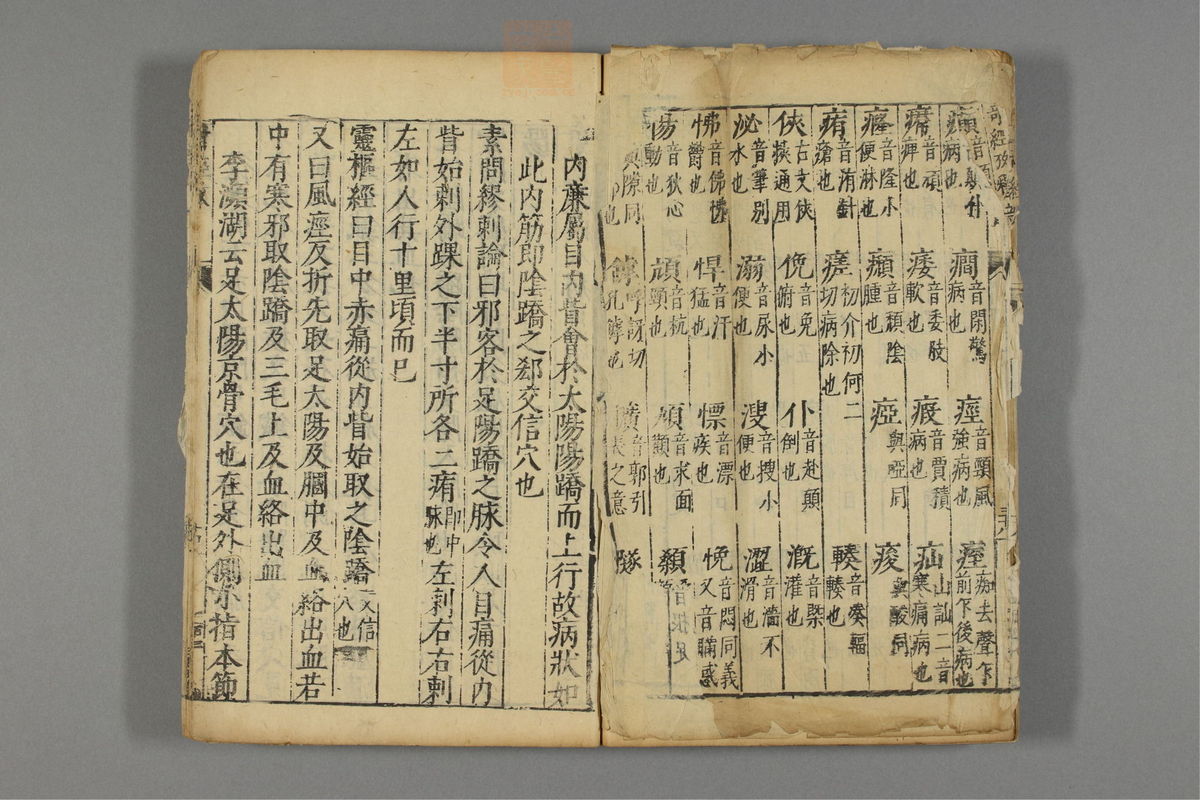 奇經攷
癎音閑驚病也
痙音頸風強病也
痓癡去聲乍前乍後病也
痿音委肢軟也
瘕音賈積病也
疝山訕二音寒痛病也
癃音隆小便淋也
㿗音頹陰腫也
瘂與啞同
痠與酸同
痏音洧針瘡也
瘥初介初何二切病除也
輳音湊輻輳也
俠古文俠挾通用
俛音免俯也
仆音赴顛倒也
溉音槩灌也
泌音筆別水也
溺音尿小便也
溲音搜小便也
澀音濇不滑也
怫音佛怫鬱也
悍音汗猛也
慓音漂疾也
悗音悶同義又音瞞惑
惕音狄心動也
頏音杭頸也
頄音求面顴也
與隙同
罅呼訝切孔罅也
音郭引張之意
內廉屬目內眥會於太陽陽蹻而上行故病狀如
此內筋即陰蹻之郄交信穴也
素問繆刺論曰邪客於足陽蹻之脉令人目痛從內
眥始刺外踝之下半寸所各二痏即申脉也左刺右右刺
左如人行十里頃而已
靈樞經曰目中赤痛從內眥始取之陰蹻交信穴也
又曰風痙反折先取足太陽及膕中及血絡出血若
中有寒邪取陰蹻及三毛上及血絡出血
李瀕湖云足太陽京骨穴也在足外側小指本節